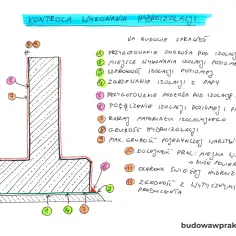 KONTROLA WYKONANIA HYDROIZOLACJI
NA BUDOWIE SPRAWDŹ
1 PRZYGOTOWANIE PODŁOŻA POD IZOL
2 MIEJSCE WYKONANIA IZOLACJI POZIOM
3 SZEROKOŚĆ IZOLACJI POZIOMEJ
4 ZGRZEWANIE IZOLACJI Z PAPY
5 PRZYGOTOWANIE PODŁOŻA POD IZOL
6 POŁĄCZENIE IZOLACJI POZIOMEJ I P
7 RODZAJ MATERIAŁU IZOLACYJNEGO
8 GRUBOŚĆ HYDROIZOLACJI
9 MAX. GRUBOŚĆ POJEDYNCZEJ WARSTW
10 KOLEJNOŚĆ PRAC:
11 OCHRONA ŚWIEŻEJ HYDROIZ
12 ZGODNOŚĆ Z WYTYCZNYMI
PRODUCENTA
budowawprak